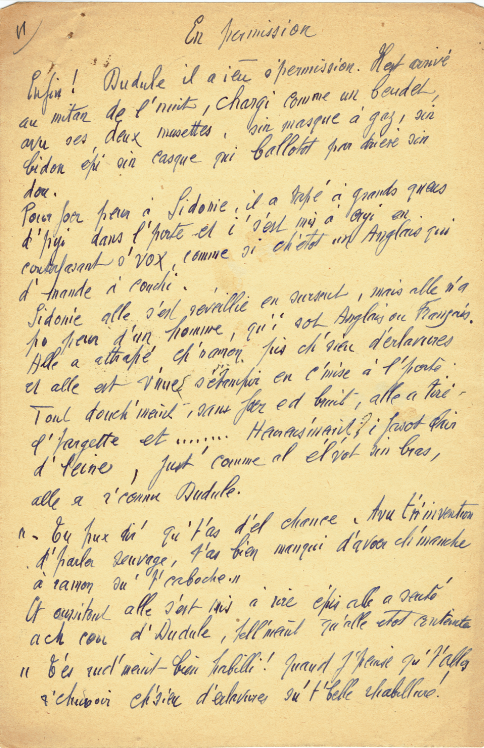 En permission
Enfin ! Dudule il a ieu s'permission. Il est arrivé
au mitan de l'nuit, chargi comme un beudet,
avu ses deux musettes, sin masque à gaz, sin
bidon épi sin casque qui ballotot par driere sin
dou.
Pour fer peur à Sidonie, il a tapé à grands queus
d'pyi dans l'porte et i s'est mis à cryi en
contrafasant s'vox, comme si ch'étot un Anglais qui
d'mande à couchi.
Sidonie alle s'est réveillie en sursaut, mais alle n'a
po peur d'un homme, qu'i sot Anglais ou Français.
Alle a attrapé ch'ramon, pis ch'sieu d'erlavures
et alle est v'nue s'étampir en c'mise à l'porte.
Tout douch'meint, sans fer ed bruit, alle a tiré
l'pargette et ....... Heureus'meint, i fasot clair
d'leine, just' comme al él'vot sin bras,
alle a r'connu Dudule.
"- Tu peux dir' qu't'as d'el chance. Avu t'n'invention
d'parler sauvage, t'as bien manqui d'avoer ch'manche
à ramon su' t'caboche."
Et aussitout alle s'est mis a rire épis alle a sauté
ach cou d'Dudule, tell'meint qu'alle étot contente
" T'es rud'meint bien habilli ! Quand j'pense qu't'allos
r'chuvoir ch'sieu d'erlavures su' t'belle rhabillure !